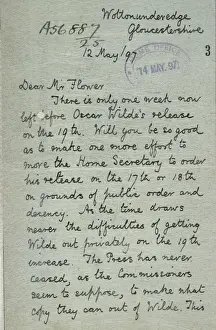 Wottonunderedge
Gloucestershire
A56887
25
12 May/97
14 MAY.97
3
Dear Mr Flower
There is only one week now
left before Oscar Wilde's release
on the 19th. Will you be so good
as to make one more effort to
move the Home Secretary to order
his release on the 17th or 18th
on grounds of public order and
decency. As the time draws
nearer the difficulties of getting
Wilde out privately on the 19th
increase. The Press has never
ceased, as the Commissioners
seem to suppose, to make what
copy they can out of Wilde. This